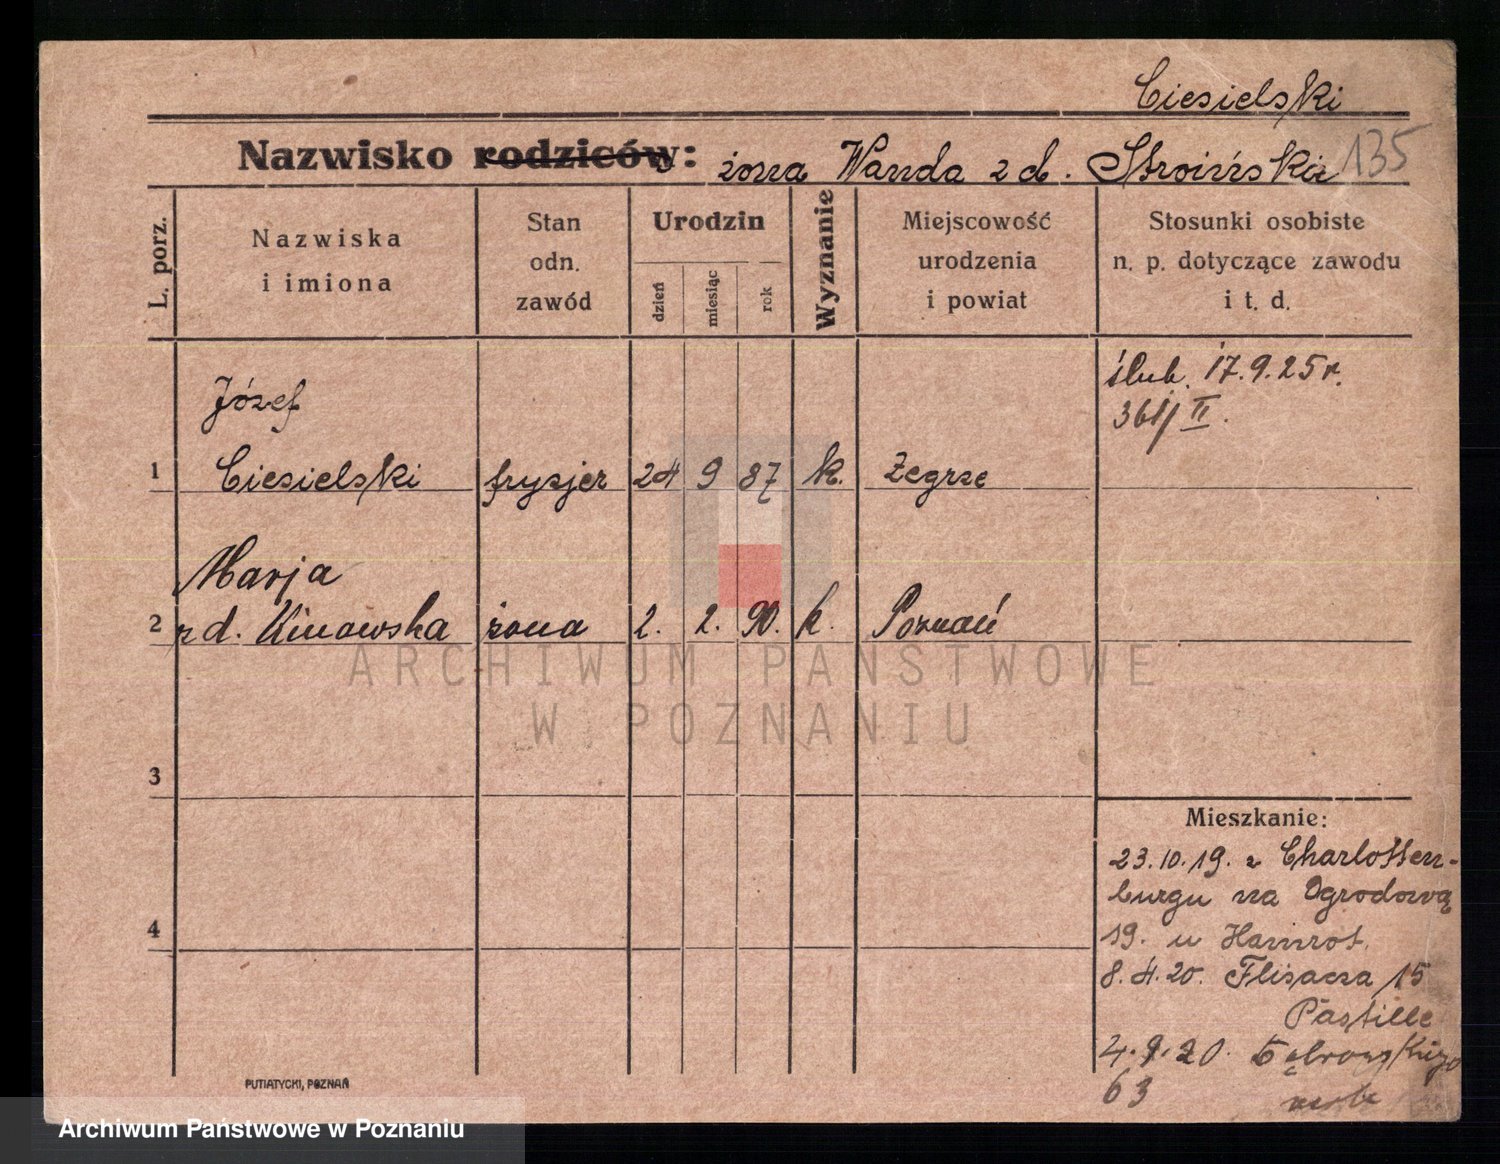 Ciesielski
Nazwisko rodziców: żona Wanda z d. Stroińskich 135
L. porz.
Nazwiska
i imiona
Stan
odn.
zawód
Urodzin
dzień
miesiąc
rok
Wyznanie
Miejscowość
urodzenia
i powiat
Stosunki osobiste
n. p. dotyczące zawodu
i t. d.
ślub. 17.9.25 r.
361/II.
Józef
1 Ciesielski fryzjer 24 9 87 k. Żegrze
Marja
2 z d. żona 2. 2. 90. k. Poznań
ARCHIWUM PAŃSTWOWE
W POZNANIU
3
4
Mieszkanie:
23.10.19. z Charlotten-
burgu na Ogrodową
19. u
8.4.20. Flisacza 15
Pastille
4.9.20.
63
PUTIATYCKI, POZNAŃ
Archiwum Państwowe w Poznaniu